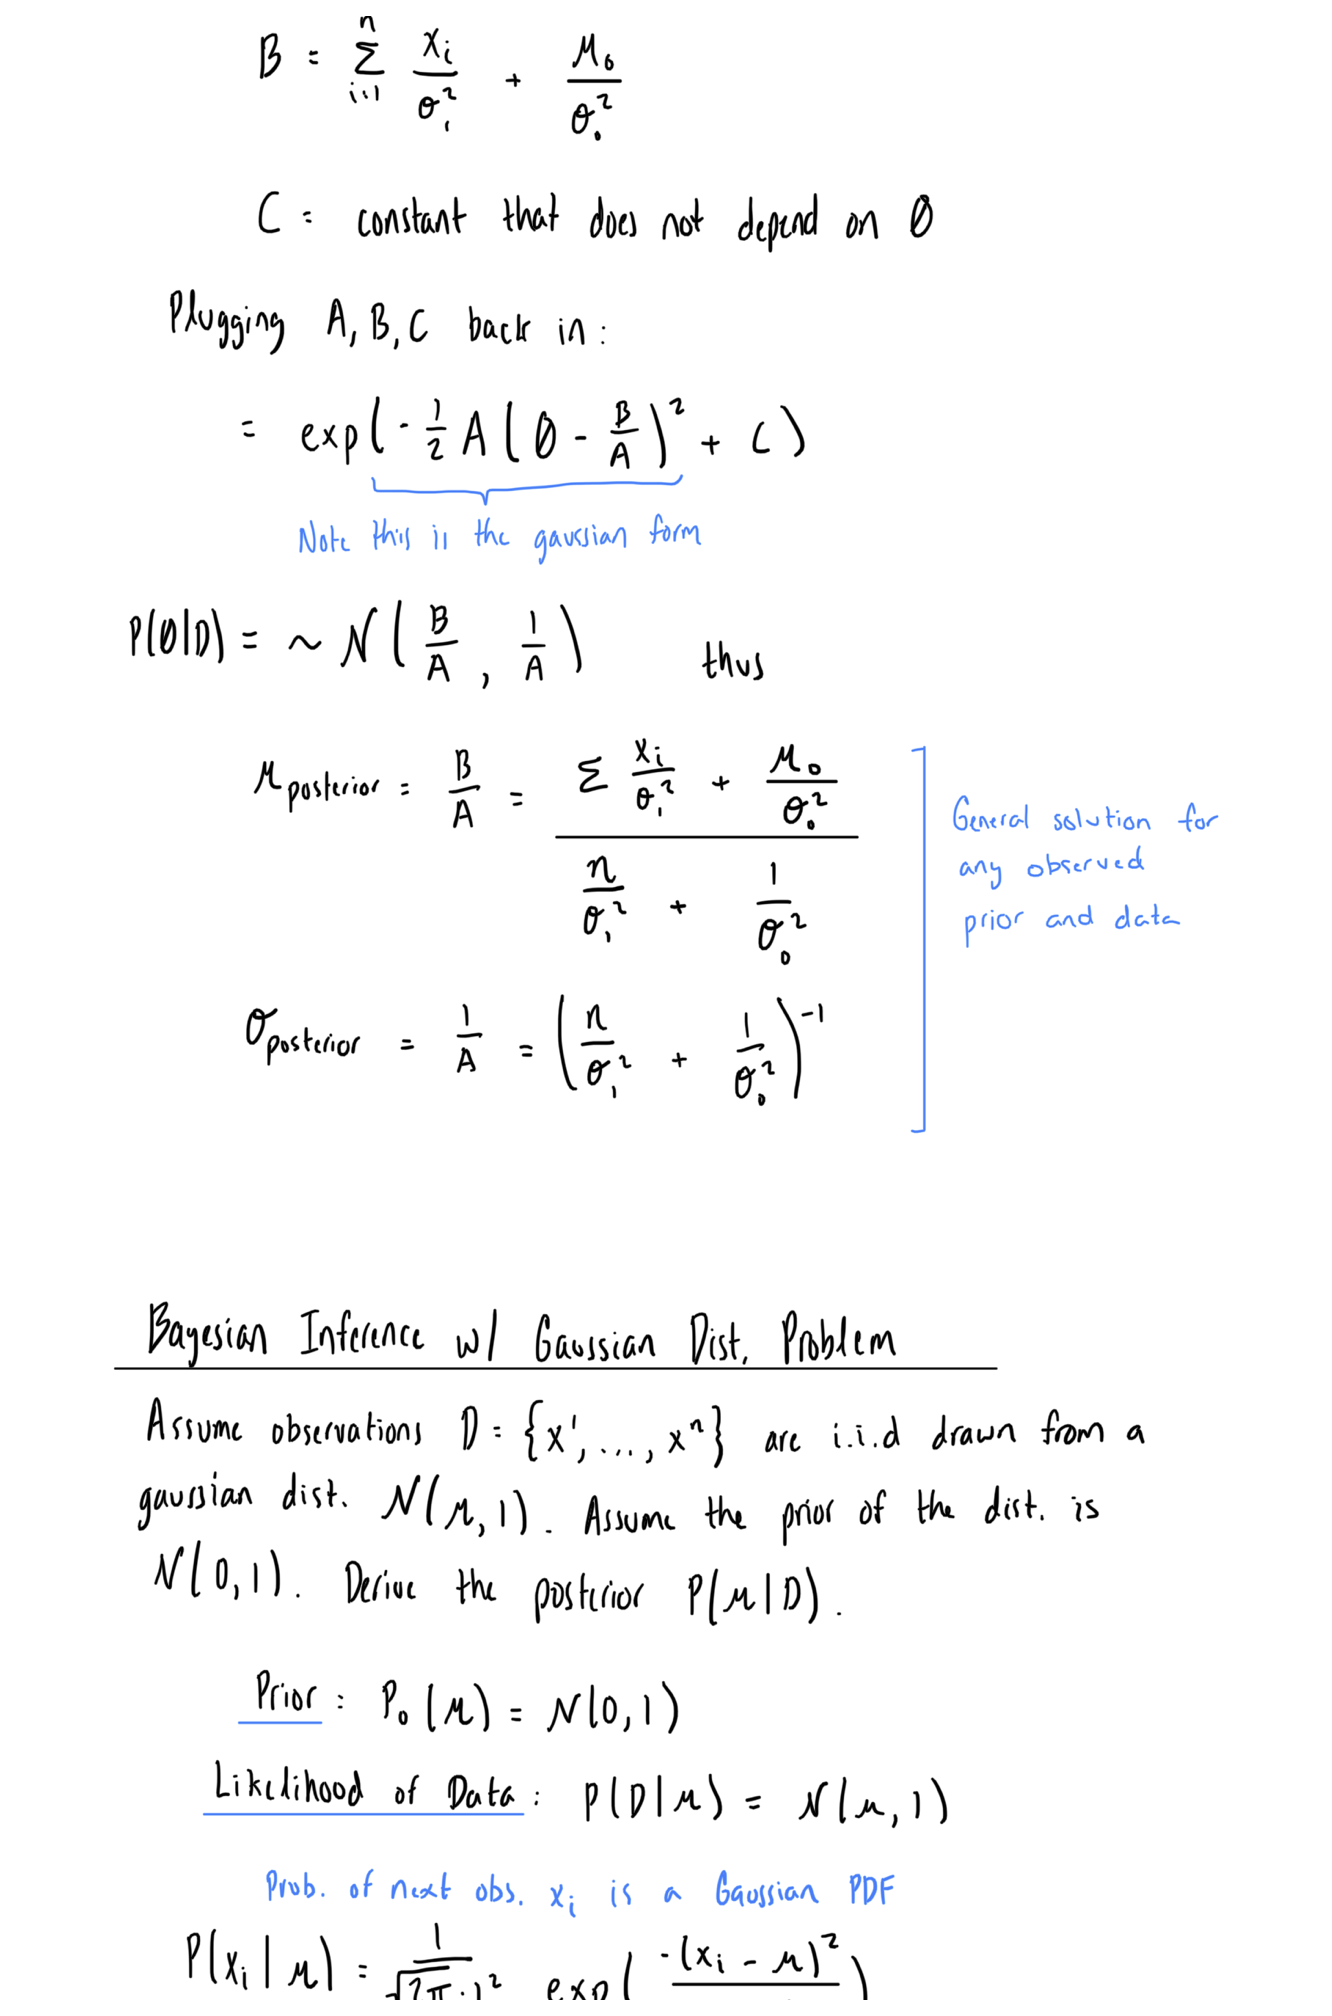 B = Σ_{i=1}^{n} x_i/σ_1² + μ_0/σ_0²
C = constant that does not depend on θ
Plugging A, B, C back in:
= exp(-1/2 A(θ - B/A)² + C)
Note this is the gaussian form
P(θ|D) = ~ N(B/A, 1/A) thus
μ_posterior = B/A = (Σ x_i/σ_1² + μ_0/σ_0²) / (n/σ_1² + 1/σ_0²)
General solution for
any observed
prior and data
σ_posterior = 1/A = (n/σ_1² + 1/σ_0²)^{-1}
Bayesian Inference w/ Gaussian Dist. Problem
Assume observations D = {x¹, ..., xⁿ} are i.i.d drawn from a
gaussian dist. N(μ, 1). Assume the prior of the dist. is
N(0, 1). Derive the posterior P(μ|D).
Prior: P_0(μ) = N(0, 1)
Likelihood of Data: P(D|μ) = N(μ, 1)
Prob. of next obs. x_i is a Gaussian PDF
P(x_i|μ) = 1/√2π·1² exp(-(x_i - μ)²